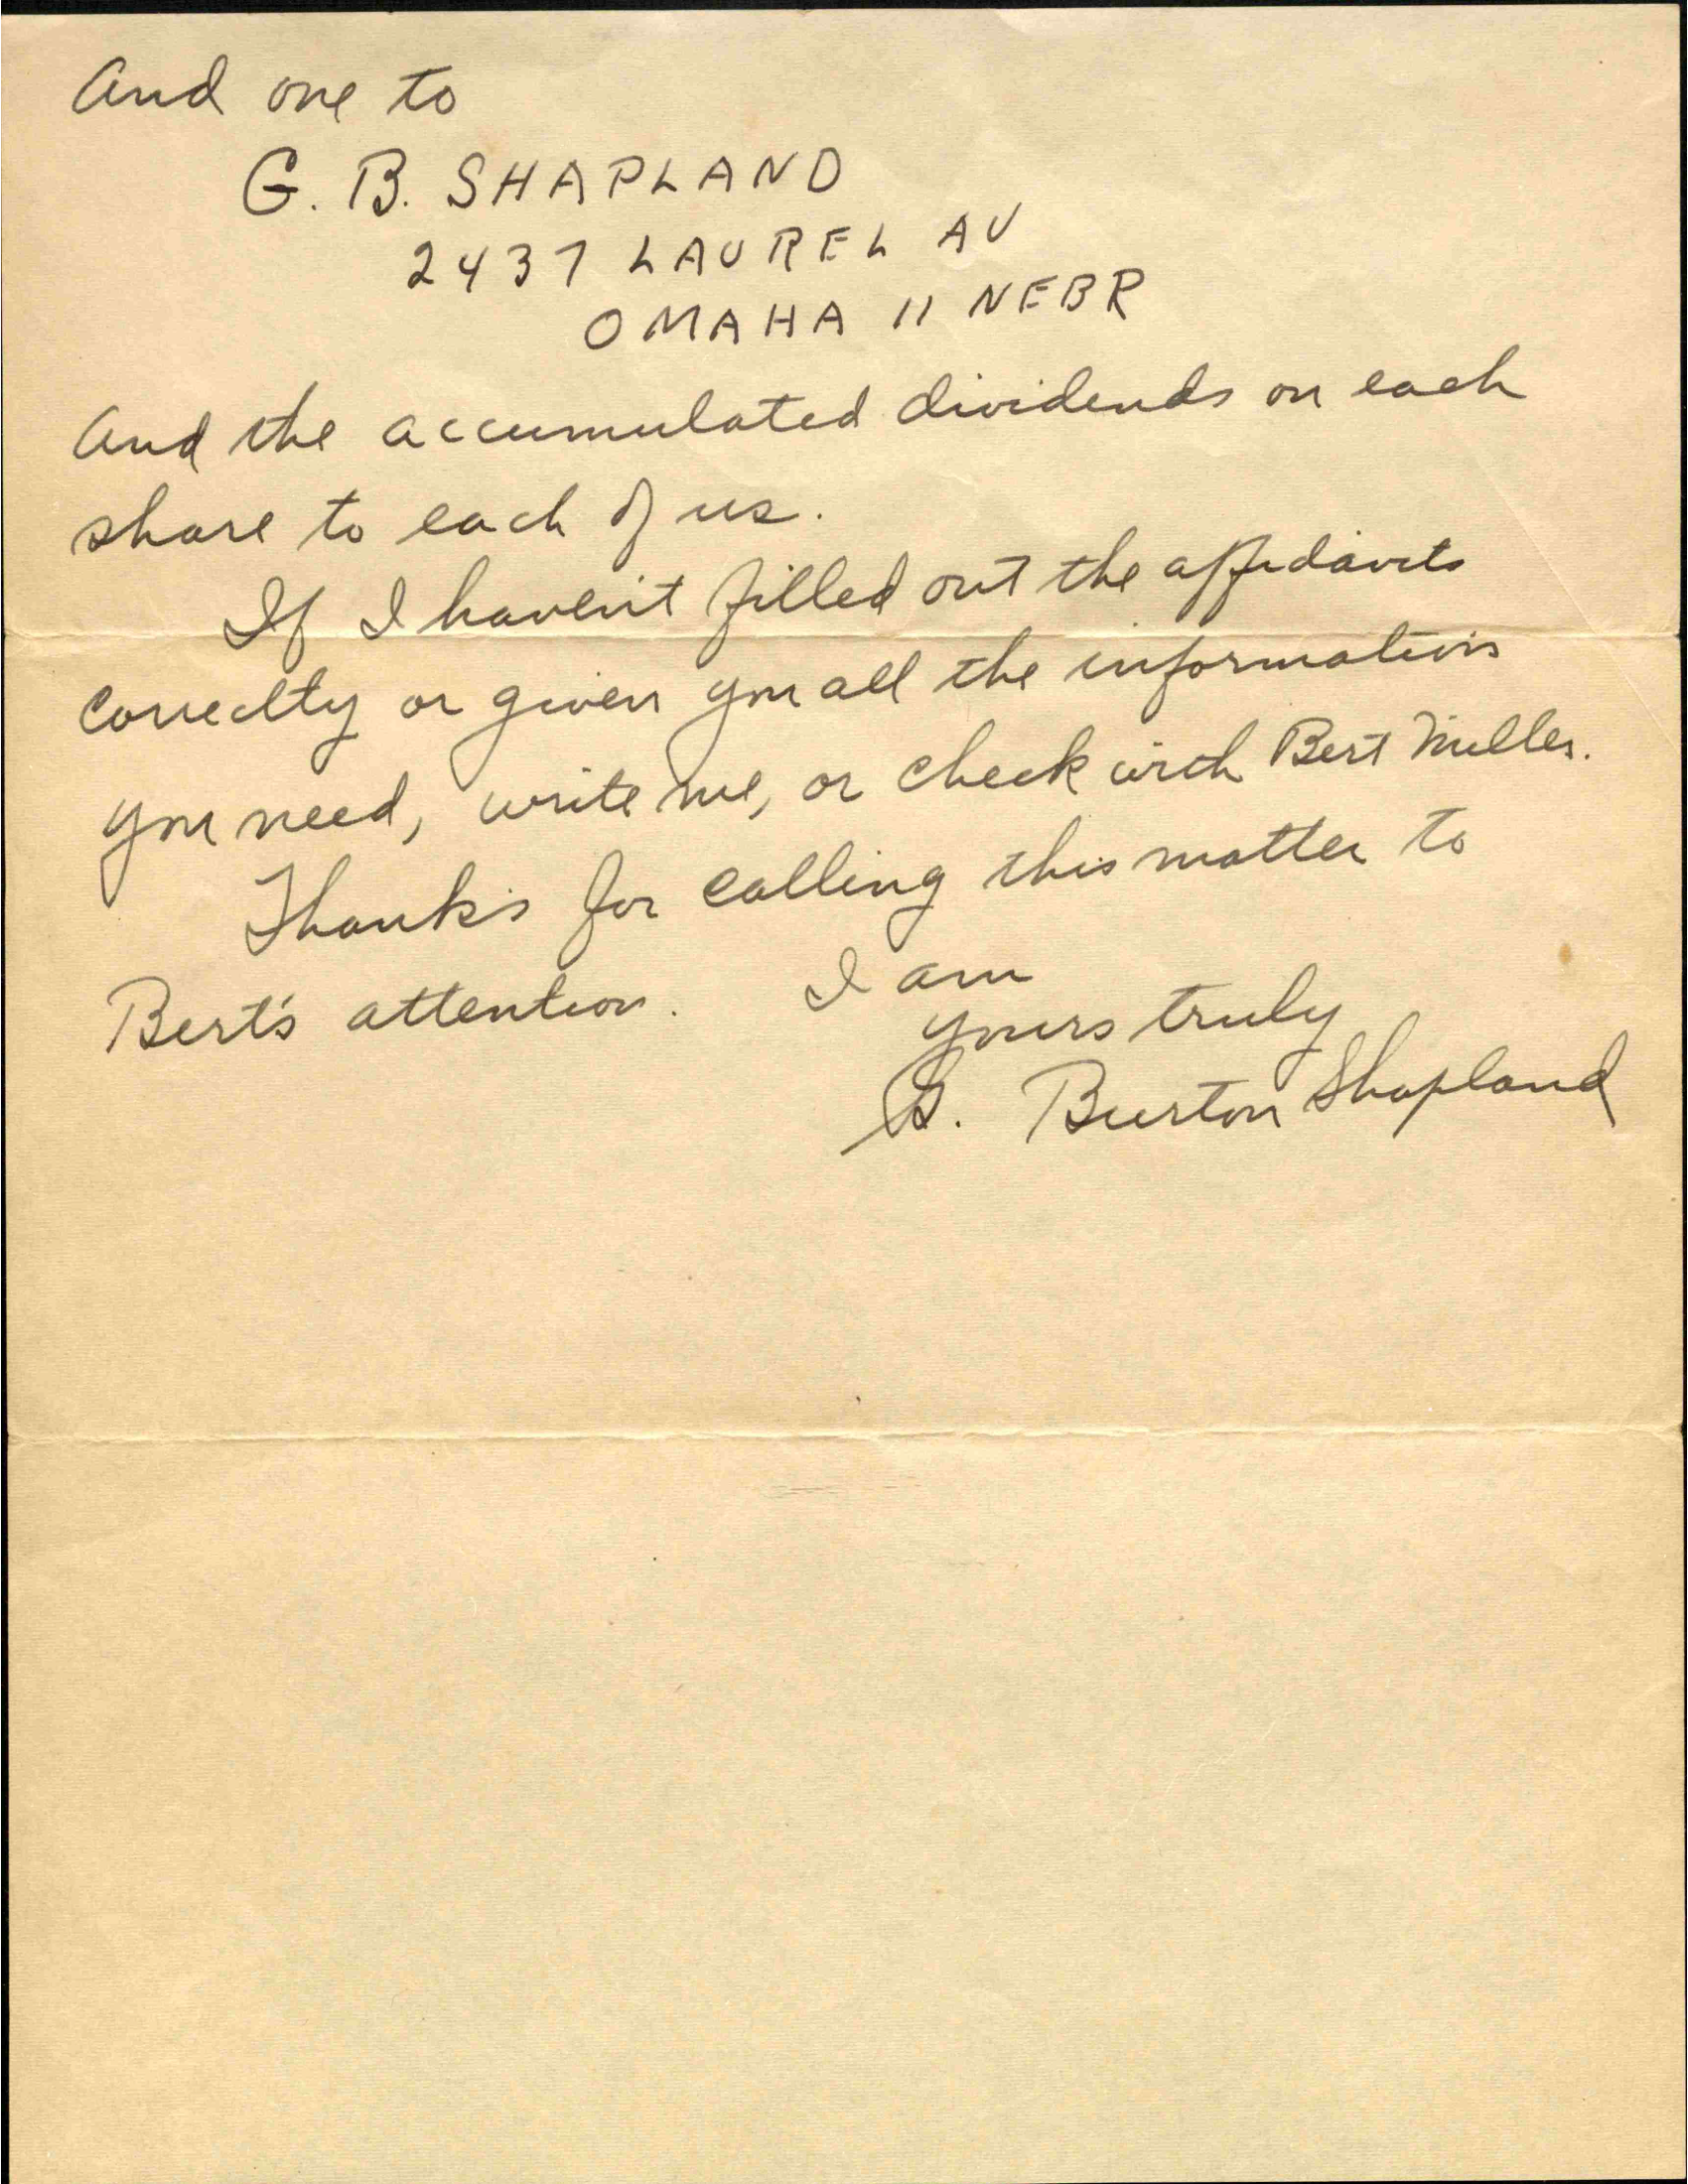 And one to
G. B. SHAPLAND
2437 LAUREL AV
OMAHA 11 NEBR
And the accumulated dividends on each
share to each of us.
If I haven't filled out the affidavits
correctly or given you all the information
you need, write me, or check with Bert Miller.
Thanks for calling this matter to
Bert's attention. I am
yours truly
G. Burton Shapland